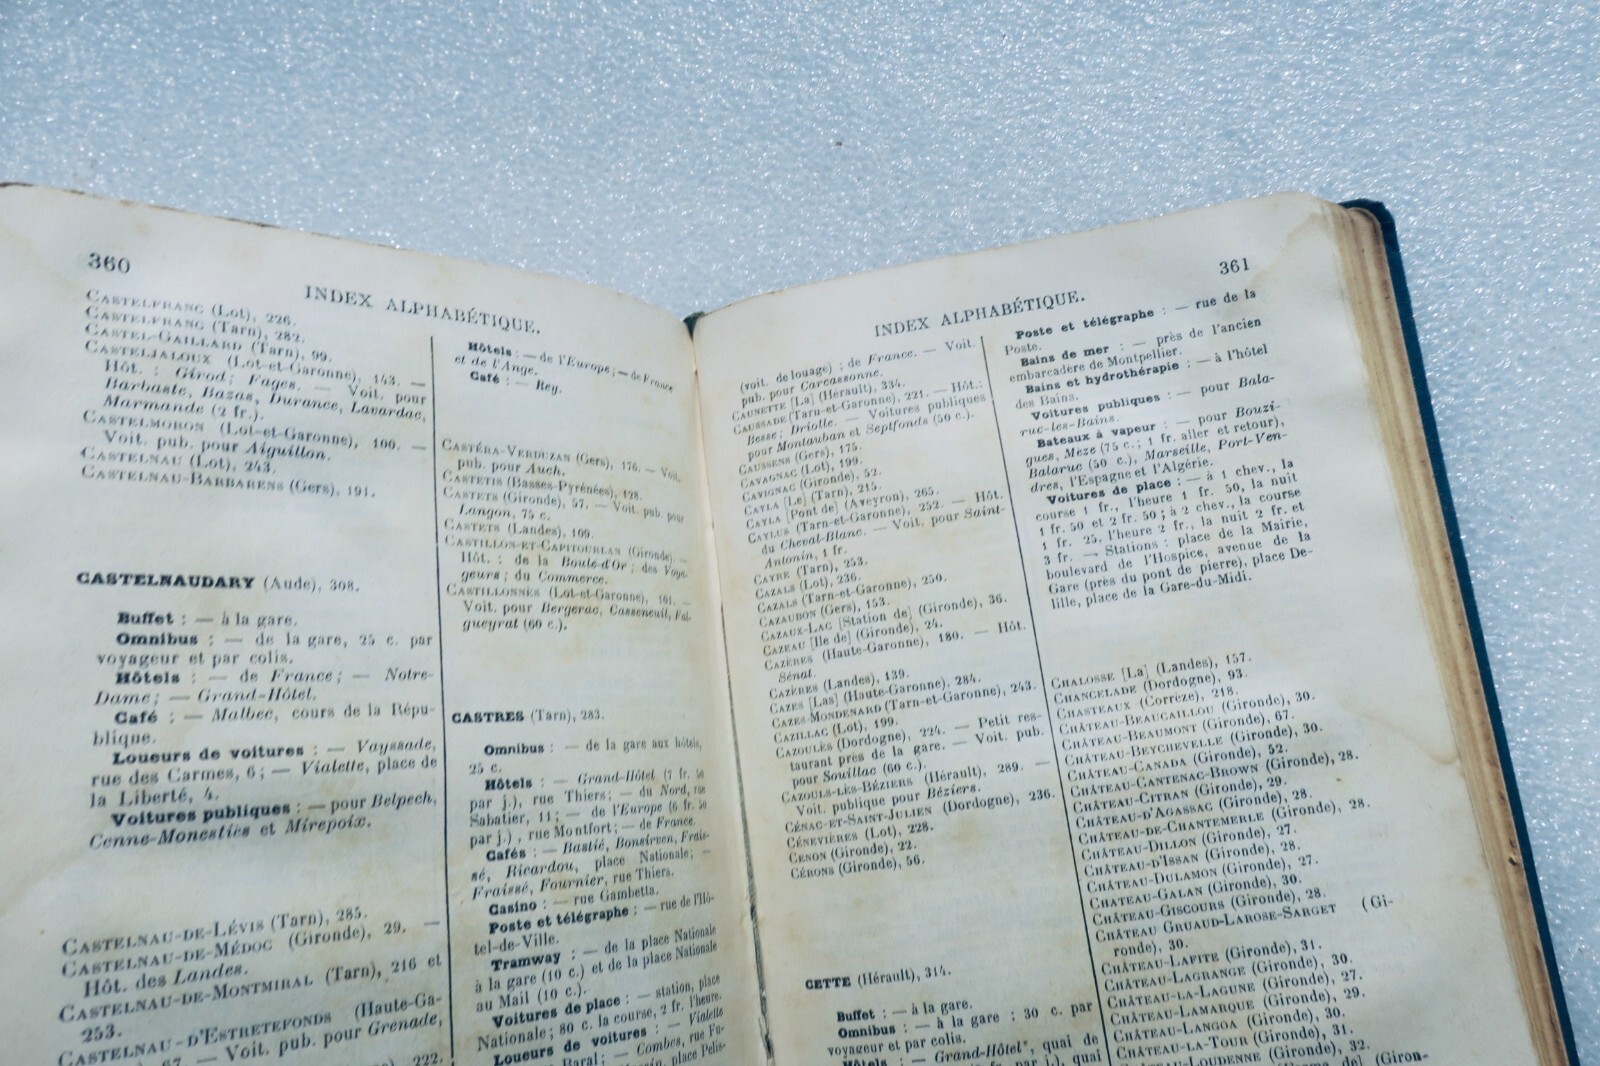 360
INDEX ALPHABÉTIQUE.
CASTELFRANC (Lot), 226.
CASTELFRANC (Tarn), 282.
CASTEL-GAILLARD (Tarn), 99.
CASTELJALOUX (Lot-et-Garonne), 143. —
Hôt. : Girod; Fages. — Voit. pour
Barbaste, Bazas, Durance, Lavardac,
Marmande (2 fr.).
CASTELMORON (Lot-et-Garonne), 100. —
Voit. pub. pour Aiguillon.
CASTELNAU (Lot), 243.
CASTELNAU-BARBARENS (Gers), 191.
CASTELNAUDARY (Aude), 308.
Buffet : — à la gare.
Omnibus : — de la gare, 25 c. par
voyageur et par colis.
Hôtels : — de France; — Notre-
Dame; — Grand-Hôtel.
Café : — Malbec, cours de la Répu-
blique.
Loueurs de voitures : — Vayssade,
rue des Carmes, 6; — Vialette, place de
la Liberté, 4.
Voitures publiques : — pour Belpech,
Cenne-Monesties et Mirepoix.
CASTELNAU-DE-LÉVIS (Tarn), 285.
CASTELNAU-DE-MÉDOC (Gironde), 29. —
Hôt. des Landes.
CASTELNAU-DE-MONTMIRAL (Tarn), 216 et
253.
CASTELNAU-D'ESTRETEFONDS (Haute-Ga-
67. — Voit. pub. pour Grenade,
222.
Hôtels : — de l'Europe; — de France
et de l'Ange.
Café : — Rey.
CASTÉRA-VERDUZAN (Gers), 176. — Voit.
pub. pour Auch.
CASTETIS (Basses-Pyrénées), 128.
CASTETS (Gironde), 57. — Voit. pub. pour
Langon, 75 c.
CASTETS (Landes), 109.
CASTILLON-ET-CAPITOURLAN (Gironde). —
Hôt. : de la Boule-d'Or; des Voya-
geurs; du Commerce.
CASTILLONNÈS (Lot-et-Garonne), 101. —
Voit. pour Bergerac, Casseneuil, Fal-
gueyrat (60 c.).
CASTRES (Tarn), 283.
Omnibus : — de la gare aux hôtels,
25 c.
Hôtels : — Grand-Hôtel (7 fr. 50
par j.), rue Thiers; — du Nord, rue
Sabatier, 11; — de l'Europe (6 fr. 50
par j.), rue Montfort; — de France.
Cafés : — Bastié, Bonsirven, Frais-
sé, Ricardou, place Nationale; —
Fraissé, Fournier, rue Thiers.
Casino : — rue Gambetta.
Poste et télégraphe : — rue de l'Hô-
tel-de-Ville.
Tramway : — de la place Nationale
à la gare (10 c.) et de la place Nationale
au Mail (10 c.).
Voitures de place : — station, place
Nationale; 80 c. la course, 2 fr. l'heure.
Loueurs de voitures : — Vialette
Baral; — Combes, rue Fu-
place Pelis-
361
INDEX ALPHABÉTIQUE.
(voit. de louage); de France. — Voit.
pub. pour Carcassonne.
CAUNETTE [La] (Hérault), 334.
CAUSSADE (Tarn-et-Garonne), 221. — Hôt.:
Besse; Driolle. — Voitures publiques
pour Montauban et Septfonds (50 c.).
CAUSSENS (Gers), 175.
CAVAGNAC (Lot), 199.
CAVIGNAC (Gironde), 52.
CAYLA [Le] (Tarn), 215.
CAYLA [Pont de] (Aveyron), 265.
CAYLUS (Tarn-et-Garonne), 252. — Hôt.
du Cheval-Blanc. — Voit. pour Saint-
Antonin, 1 fr.
CAYRE (Tarn), 253.
CAZALS (Lot), 236.
CAZALS (Tarn-et-Garonne), 250.
CAZAUBON (Gers), 153.
CAZAUX-LAC [Station de] (Gironde), 36.
CAZEAU [Ile de] (Gironde), 24.
CAZÈRES (Haute-Garonne), 180. — Hôt.
Sénat.
CAZÈRES (Landes), 139.
CAZES [Las] (Haute-Garonne), 284.
CAZES-MONDENARD (Tarn-et-Garonne), 243.
CAZILLAC (Lot), 199.
CAZOULÈS (Dordogne), 224. — Petit res-
taurant près de la gare. — Voit. pub.
pour Souillac (60 c.).
CAZOULS-LÈS-BÉZIERS (Hérault), 289. —
Voit. publique pour Béziers.
CÉNAC-ET-SAINT-JULIEN (Dordogne), 236.
CÉNEVIÈRES (Lot), 228.
CENON (Gironde), 22.
CÉRONS (Gironde), 56.
CETTE (Hérault), 314.
Buffet : — à la gare.
Omnibus : — à la gare : 30 c. par
voyageur et par colis.
Hôtels : — Grand-Hôtel*, quai de
fr. par j.), quai
Poste et télégraphe : — rue de la
Poste.
Bains de mer : — près de l'ancien
embarcadère de Montpellier.
Bains et hydrothérapie : — à l'hôtel
des Bains.
Voitures publiques : — pour Bala-
ruc-les-Bains.
Bateaux à vapeur : — pour Bouzi-
gues, Mèze (75 c.; 1 fr. aller et retour),
Balaruc (50 c.), Marseille, Port-Ven-
dres, l'Espagne et l'Algérie.
Voitures de place : — à 1 chev., la
course 1 fr., l'heure 1 fr. 50, la nuit
1 fr. 50 et 2 fr. 50; à 2 chev., la course
1 fr. 25, l'heure 2 fr., la nuit 2 fr. et
3 fr. — Stations : place de la Mairie,
boulevard de l'Hospice, avenue de la
Gare (près du pont de pierre), place De-
lille, place de la Gare-du-Midi.
CHALOSSE [La] (Landes), 157.
CHANCELADE (Dordogne), 93.
CHASTEAUX (Corrèze), 218.
CHÂTEAU-BEAUCAILLOU (Gironde), 30.
CHÂTEAU-BEAUMONT (Gironde), 67.
CHÂTEAU-BEYCHEVELLE (Gironde), 30.
CHÂTEAU-CANADA (Gironde), 52.
CHÂTEAU-CANTENAC-BROWN (Gironde), 28.
CHÂTEAU-CITRAN (Gironde), 29.
CHÂTEAU-D'AGASSAC (Gironde), 28.
CHÂTEAU-DE-CHANTEMERLE (Gironde), 28.
CHÂTEAU-DILLON (Gironde), 27.
CHÂTEAU-D'ISSAN (Gironde), 28.
CHÂTEAU-DULAMON (Gironde), 27.
CHÂTEAU-GALAN (Gironde), 30.
CHÂTEAU-GISCOURS (Gironde), 28.
CHÂTEAU GRUAUD-LAROSE-SARGET (Gi-
ronde), 30.
CHÂTEAU-LAFITE (Gironde), 31.
CHÂTEAU-LAGRANGE (Gironde), 30.
CHÂTEAU-LA-LAGUNE (Gironde), 27.
CHÂTEAU-LAMARQUE (Gironde), 29.
CHÂTEAU-LANGOA (Gironde), 30.
CHÂTEAU-LA-TOUR (Gironde), 31.
CHÂTEAU-LOUDENNE (Gironde), 32.
de] (Giron-